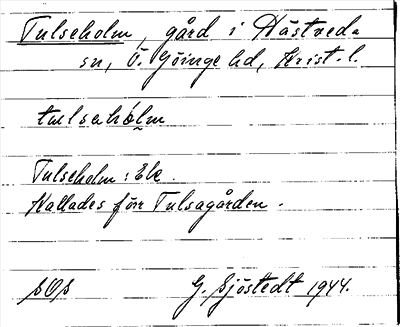 Tulseholm, gård i Hästveda
sn, Ö. Göinge hd, Krist. l.
tulsahólm
Tulseholm : Ek.
Kallades förr Tulsagården.
SOS
G. Sjöstedt 1944.